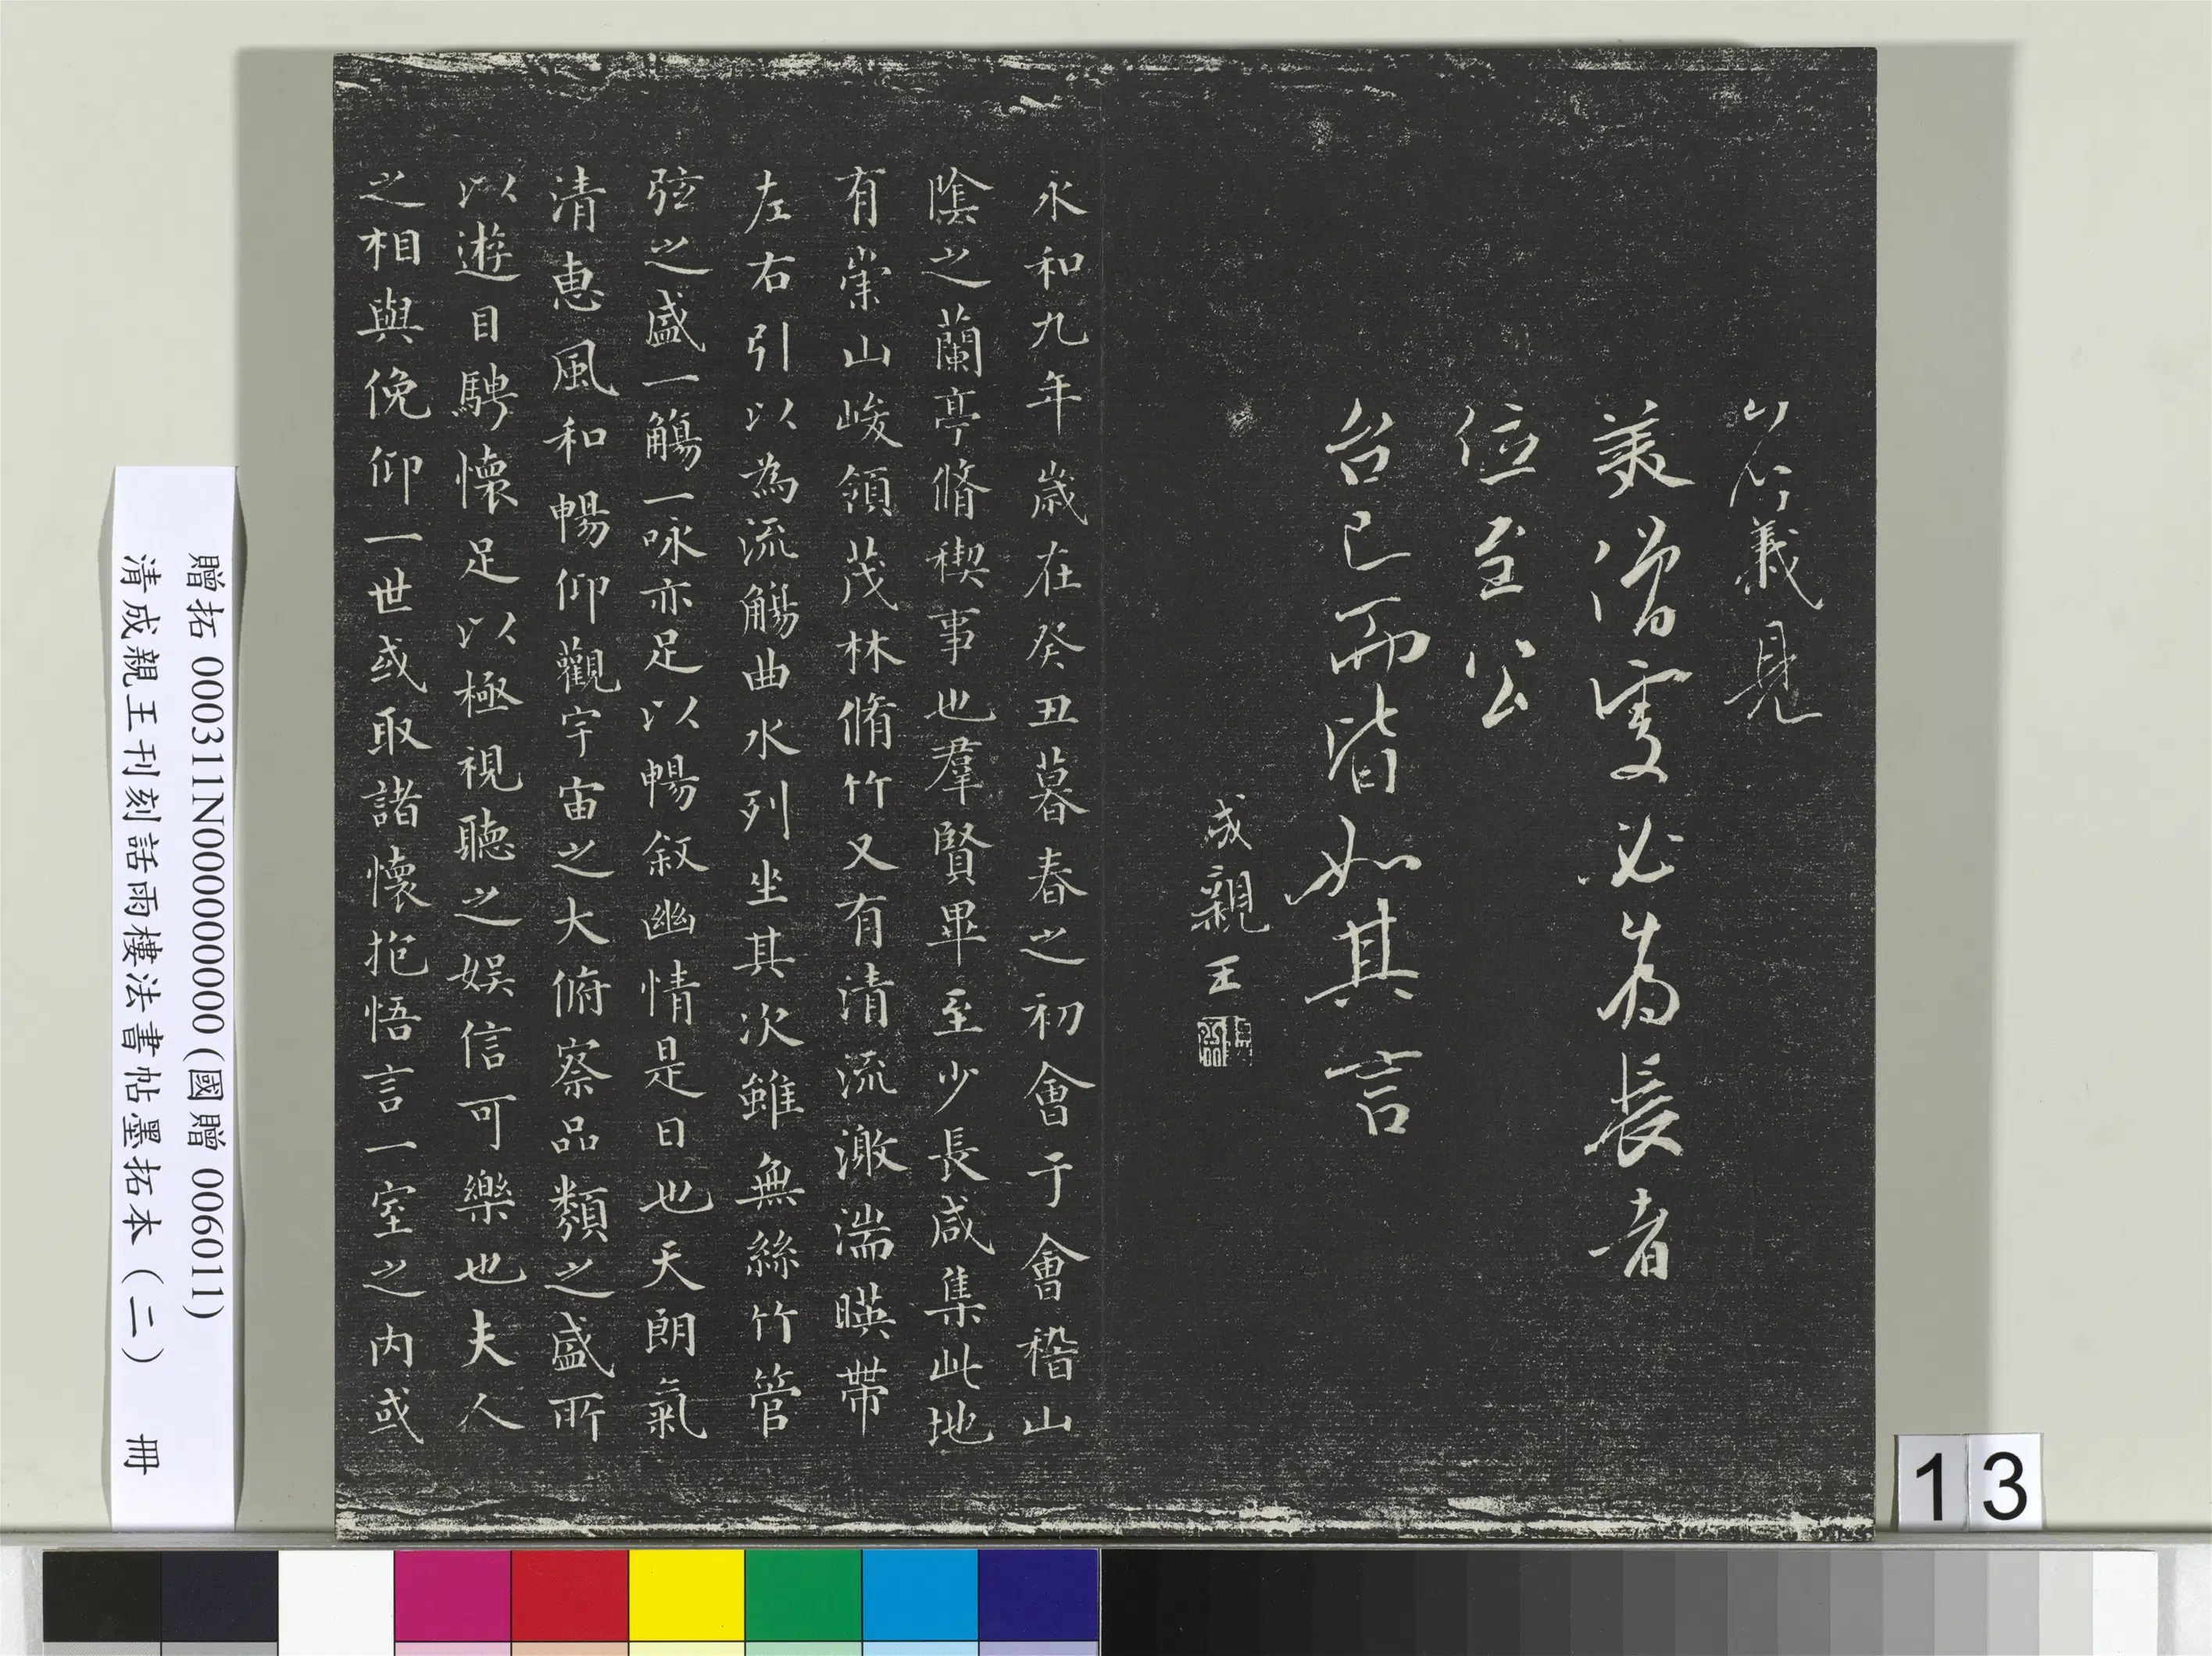 美僧虔必為長者
位至公
台已而皆如其言
成親王
永和九年歲在癸丑暮春之初會于會稽山
陰之蘭亭脩禊事也羣賢畢至少長咸集此地
有崇山峻領茂林脩竹又有清流激湍暎帶
左右引以為流觴曲水列坐其次雖無絲竹管
弦之盛一觴一咏亦足以暢敘幽情是日也天朗氣
清惠風和暢仰觀宇宙之大俯察品類之盛所
以遊目騁懷足以極視聽之娛信可樂也夫人
之相與俛仰一世或取諸懷抱悟言一室之內或
贈拓 000311N000000000 (國贈 006011)
清成親王刊刻話雨樓法書帖墨拓本（二） 冊
13